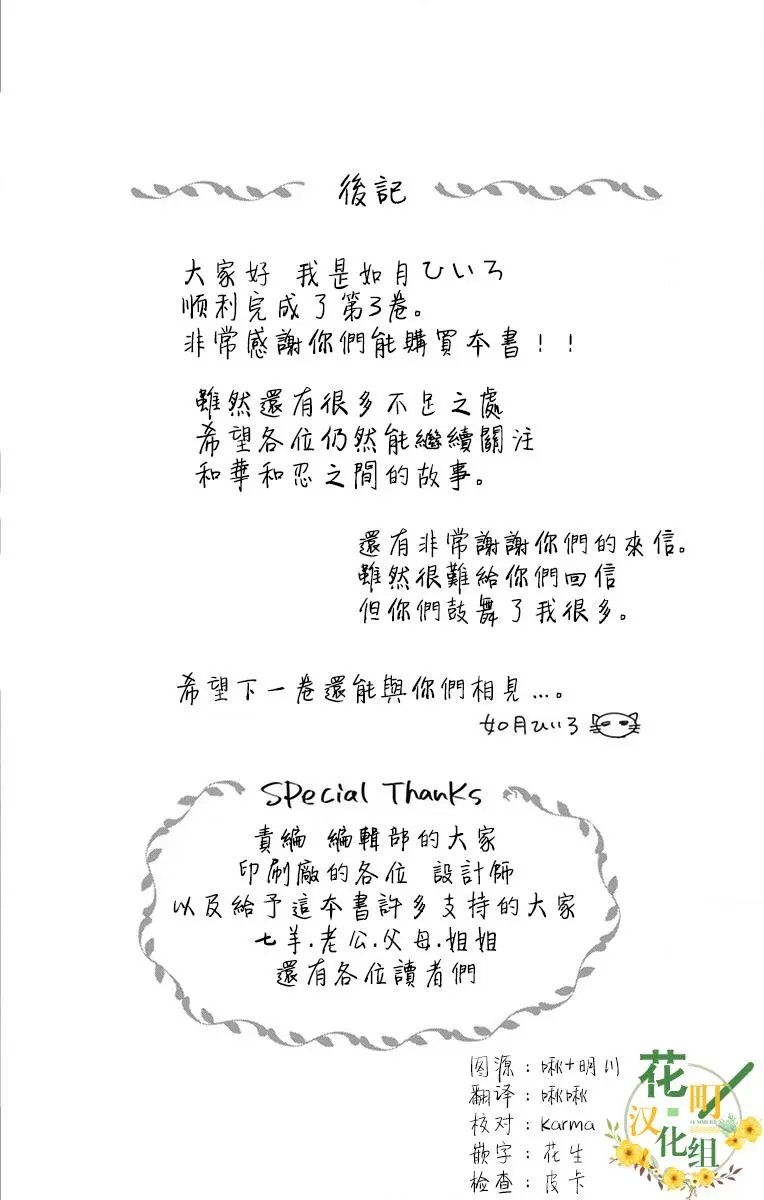 後記
大家好 我是如月ひいろ
顺利完成了第3卷。
非常感謝你們能購買本書！！
雖然還有很多不足之處
希望各位仍然能繼續關注
和華和忍之間的故事。
還有非常謝謝你們的來信。
雖然很難給你們回信
但你們鼓舞了我很多。
希望下一卷還能與你們相見…。
如月ひいろ
Special Thanks
責編 編輯部的大家
印刷廠的各位 設計師
以及給予這本書許多支持的大家
七羊.老公.父母.姐姐
還有各位讀者們
图源：啾+明川
翻译：啾啾
校对：Karma
嵌字：花生
检查：皮卡
花町
汉化组